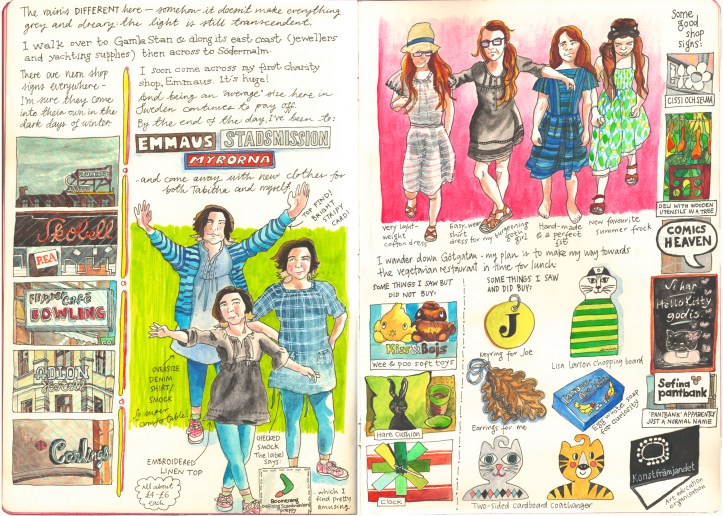 The rain's DIFFERENT here - somehow it doesn't make everything
grey and dreary. the light is still transcendent.
I walk over to Gamla Stan & along its east coast (jewellers
and yachting supplies) then across to Södermalm.
There are neon shop
signs everywhere -
I'm sure they come
into their own in the
dark days of winter.
Skobell
REA
Café
BOWLING
Carlings
I soon come across my first charity
shop, Emmaus. It's huge!
And being an 'average' size here in
Sweden continues to pay off.
By the end of the day, I've been to:
EMMAUS STADSMISSION
MYRORNA
- and come away with new clothes for
both Tabitha and myself.
TOP FIND!
BRIGHT
STRIPY
CARDI
OVERSIZE
DENIM
SHIRT/
SMOCK
So super
comfortable!
EMBROIDERED
LINEN TOP
All about
£4-£6
each
CHECKED
SMOCK
The label
says
Boomerang
... which I
find pretty
amusing.
very light-
weight
cotton dress
Easy wear
shirt
dress for my burgeoning
goth
girl
Hand-made
& a perfect
fit
New favourite
summer frock
I wander down Götgatan - my plan is to make my way towards
the vegetarian restaurant in time for lunch:
SOME THINGS I SAW BUT
DID NOT BUY:
Kiss Bajs
wee & poo soft toys
Hare cushion
clock
SOME THINGS I SAW
AND DID BUY:
J
keyring for Joe
Lisa Larson chopping board
Earrings for me
Egg white soap
for curiosity
Two-sided cardboard coathanger
Some
good
shop
signs:
CISSI OCH SELMA
DELI WITH WOODEN
UTENSILS IN A TREE
COMICS
HEAVEN
Vi har
Hello Kitty
godis
Sefina
pantbank
'PANTBANK' APPARENTLY
JUST A NORMAL NAME
Konstfrämjandet
Art education
organisation